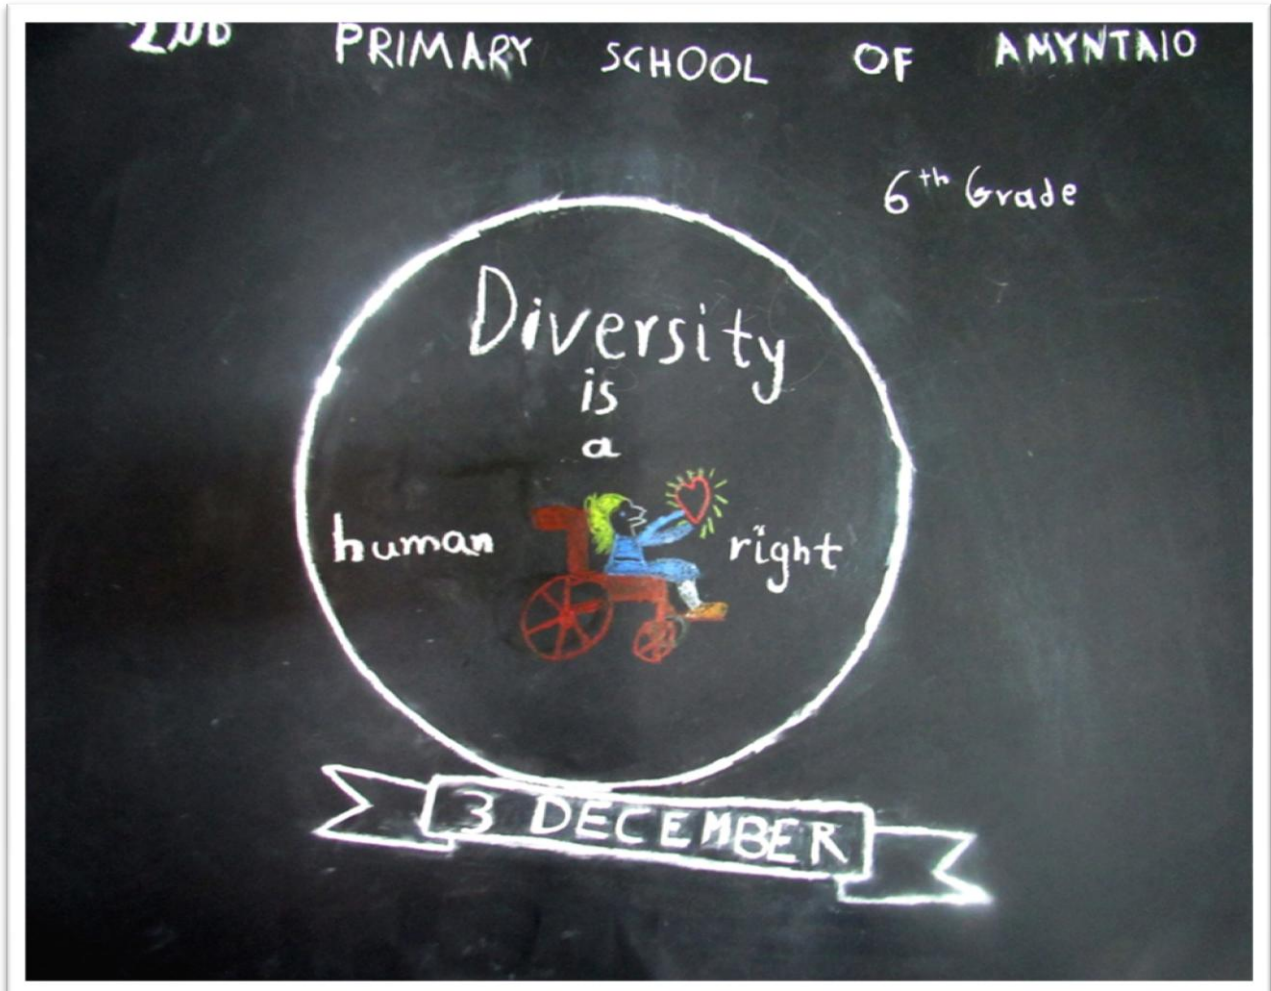 2ND PRIMARY SCHOOL OF AMYNTAIO
6th Grade
Diversity
is
a
human right
3 DECEMBER